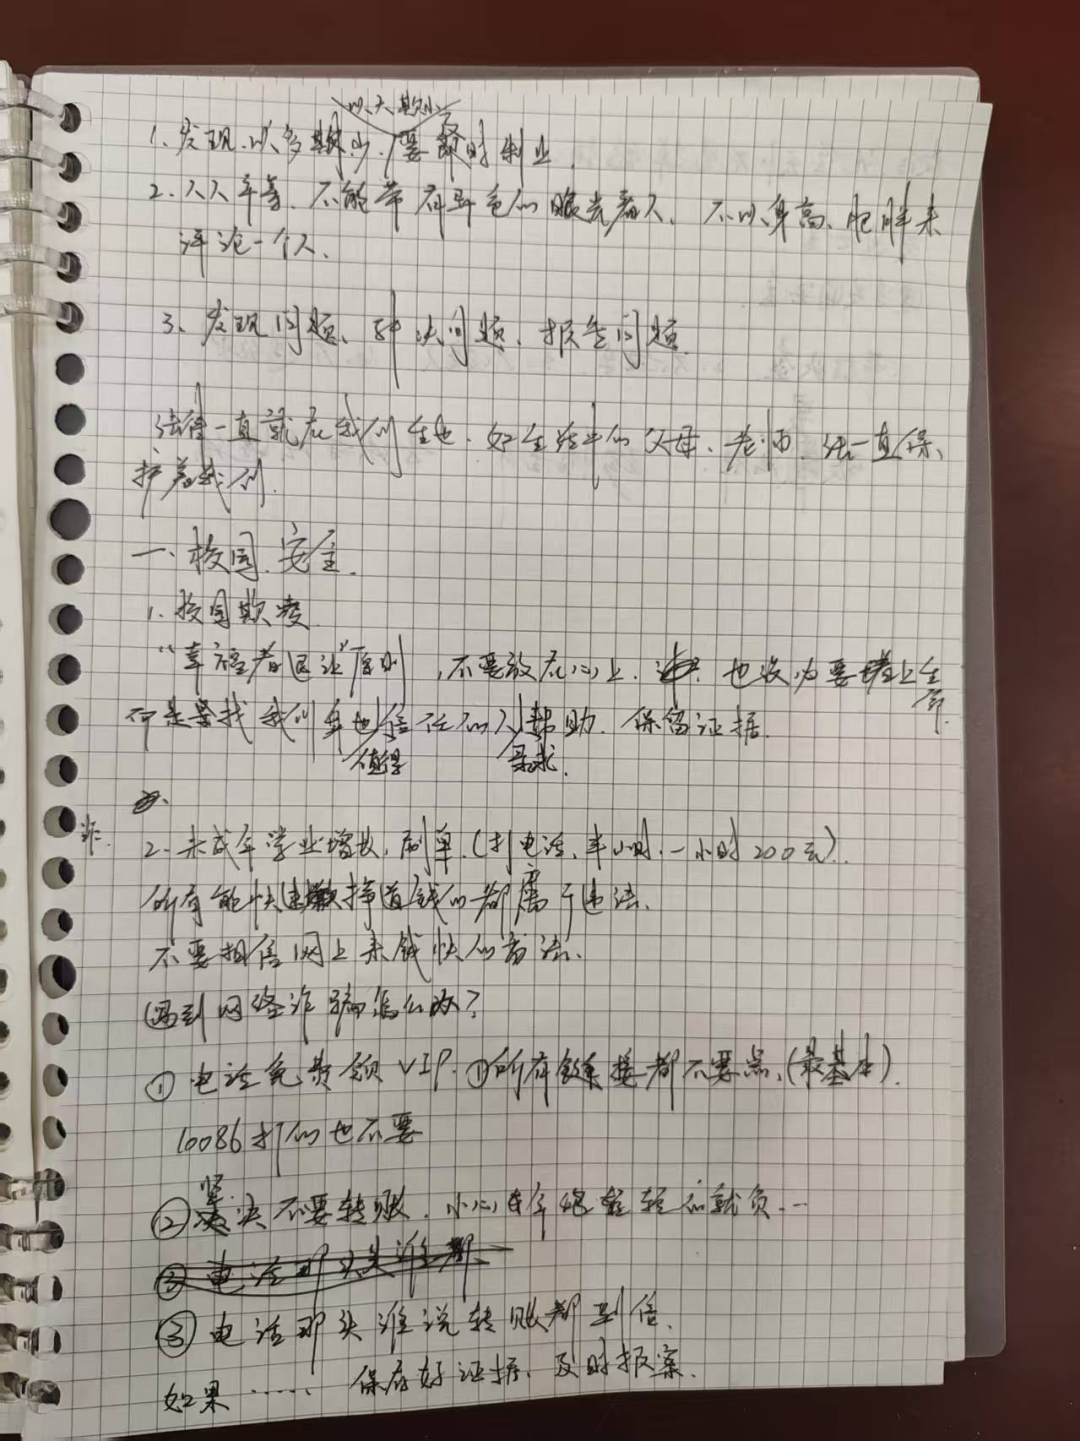 以大欺小
1.发现以多欺少,要及时制止.
2.人人平等、不能带有异色的眼光看人、不以身高、肥胖来
评论一个人、
3、发现问题、解决问题、报告问题.
法律一直就在我们身边、如生活中的父母、老师、法一直保、
护着我们.
一、校园、安全.
1.校园欺凌.
“幸福者退让”原则,不要放在心上. 也没必要堵上生
命
可是要找我们身边信任的人帮助、保留证据.
值得 寻求.
诈.
2.未成年 学业 增收,刷单.(打电话、半小时、一小时200元).
所有能快速挣道钱的都属于违法、
不要相信网上来钱快的方法、
遇到网络诈骗怎么做?
①电话免费领VIP. ①所有链接都不要点、(最基本).
10086打的也不要
坚
②决不要转账.小心年纪轻轻就负...
③电话那头谁都
③电话那头谁说转账都别信、
如果…… 保存好证据、及时报案.